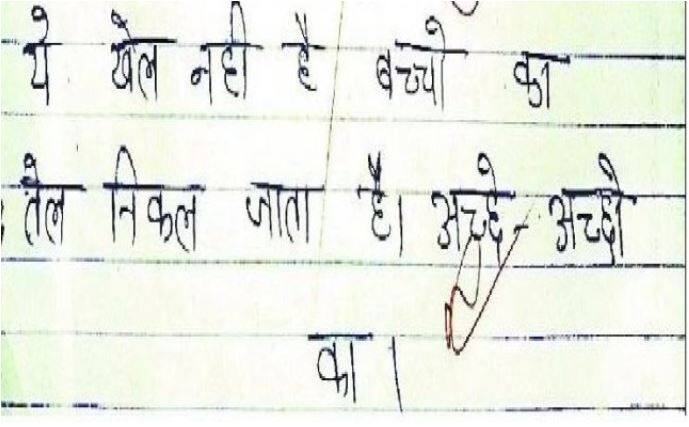 ये खेल नही है बच्चो का
तेल निकल जाता है। अच्छे-अच्छो
का।